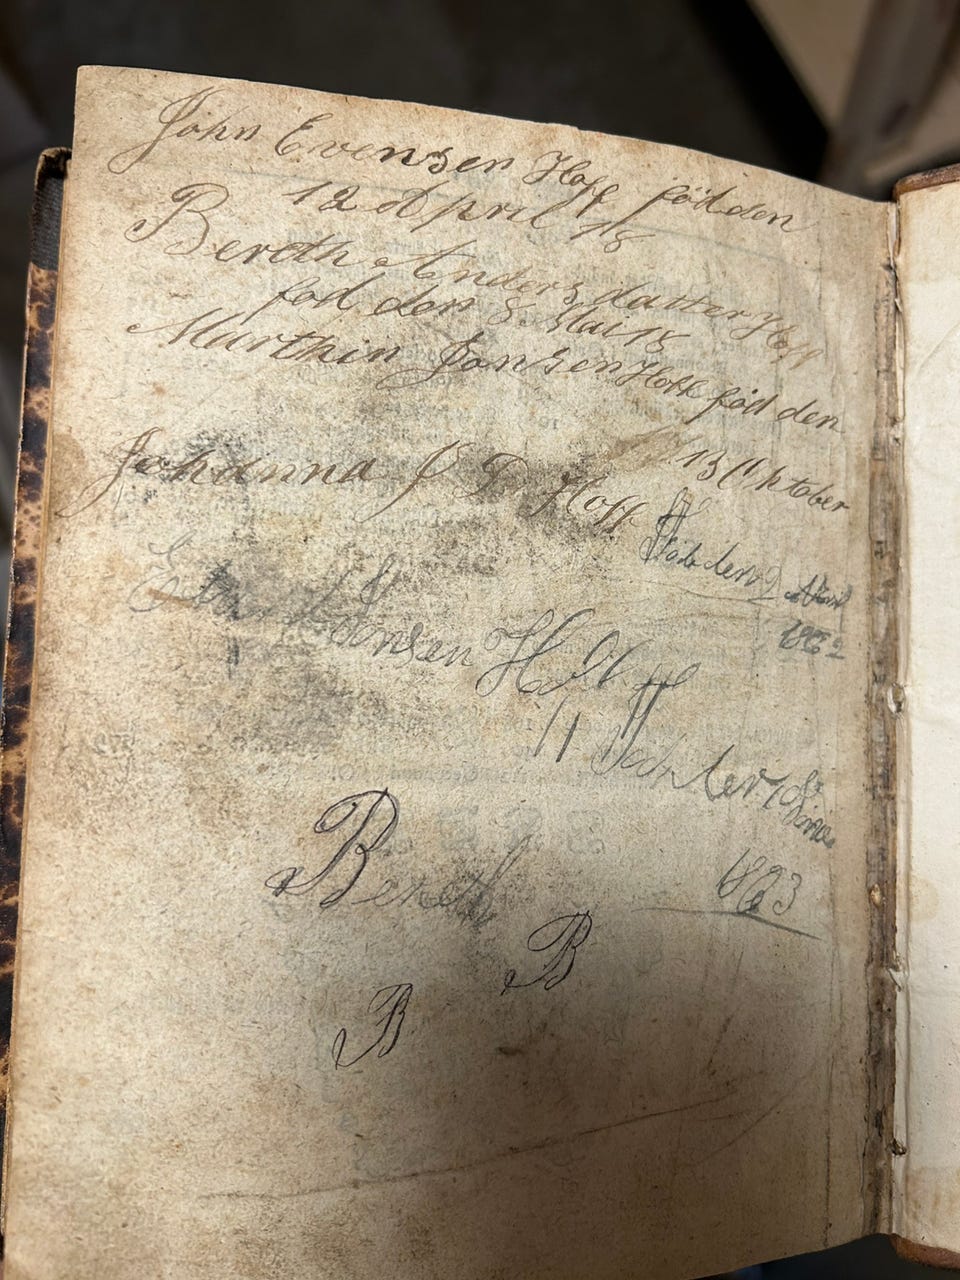 John Evensen Hoff född den
12 April 18
Bereth Andersdatter Hoff
föd den 8 Mai 18
Marthin Jonsen Hoff föd den
13 Oktober
Johanna J D Hoff
Född den 2 April
1862
Jönsen Hoff
11
1863
Bereth
B
B